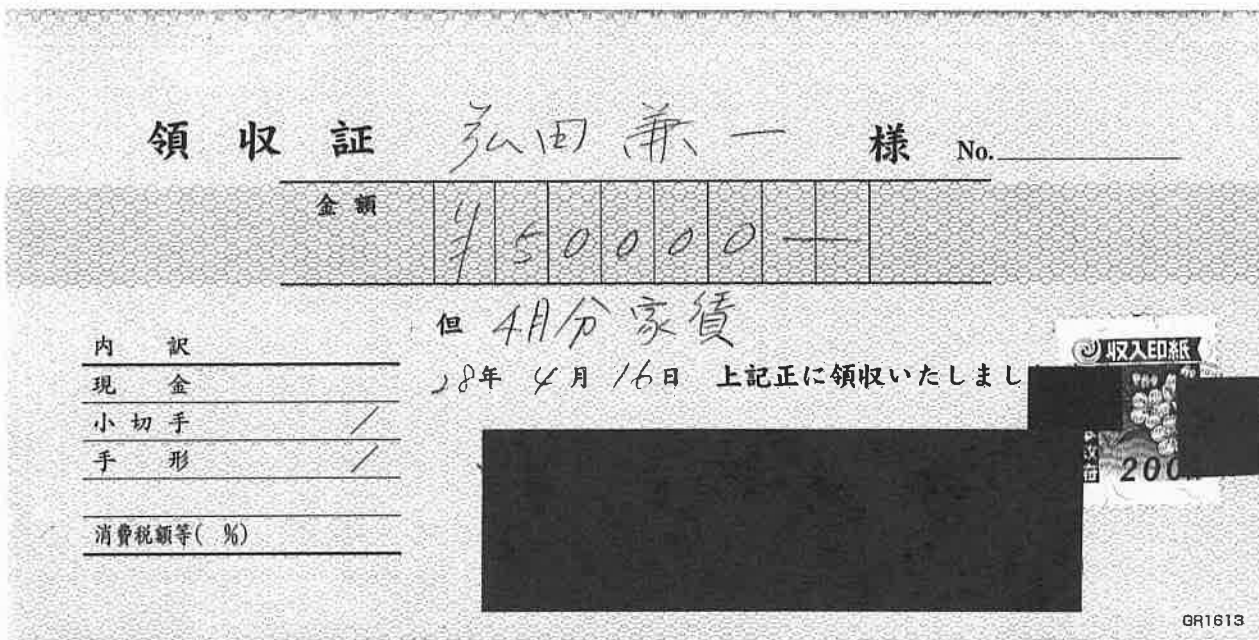 領収証 弘田兼一 様 No.
金額 ¥50000-
但 4月分家賃
28年 4月 16日 上記正に領収いたしまし
内訳
現金
小切手 /
手形 /
消費税額等( %)
収入印紙
200
GR1613